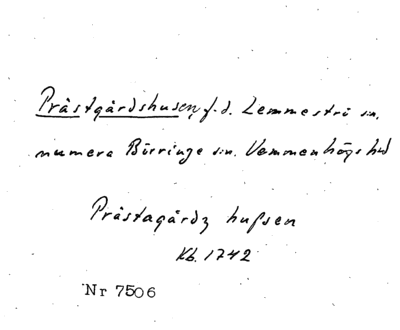 Prästgårdshusen, f.d. Lemmeströ sn,
numera Börringe sn. Vemmenhögs hd
Prästagårdz hußen
Kb. 1742
Nr 7506